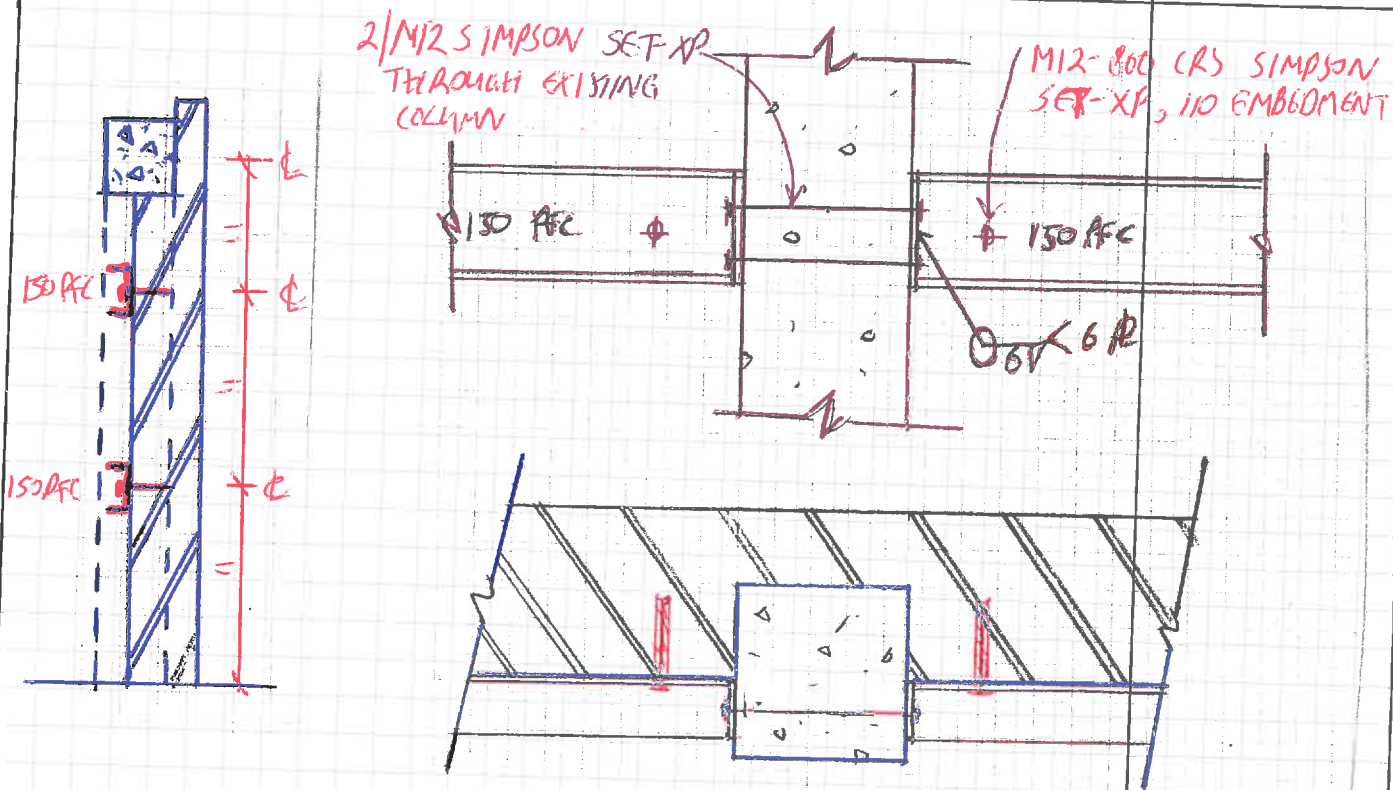 2/M12 SIMPSON SET-XP
THROUGH EXISTING
COLUMN
M12-800 CRS SIMPSON
SET-XP, 110 EMBEDMENT
150 PFC
150 PFC
150 PFC
150 PFC
℄
℄
℄
6 PL
6